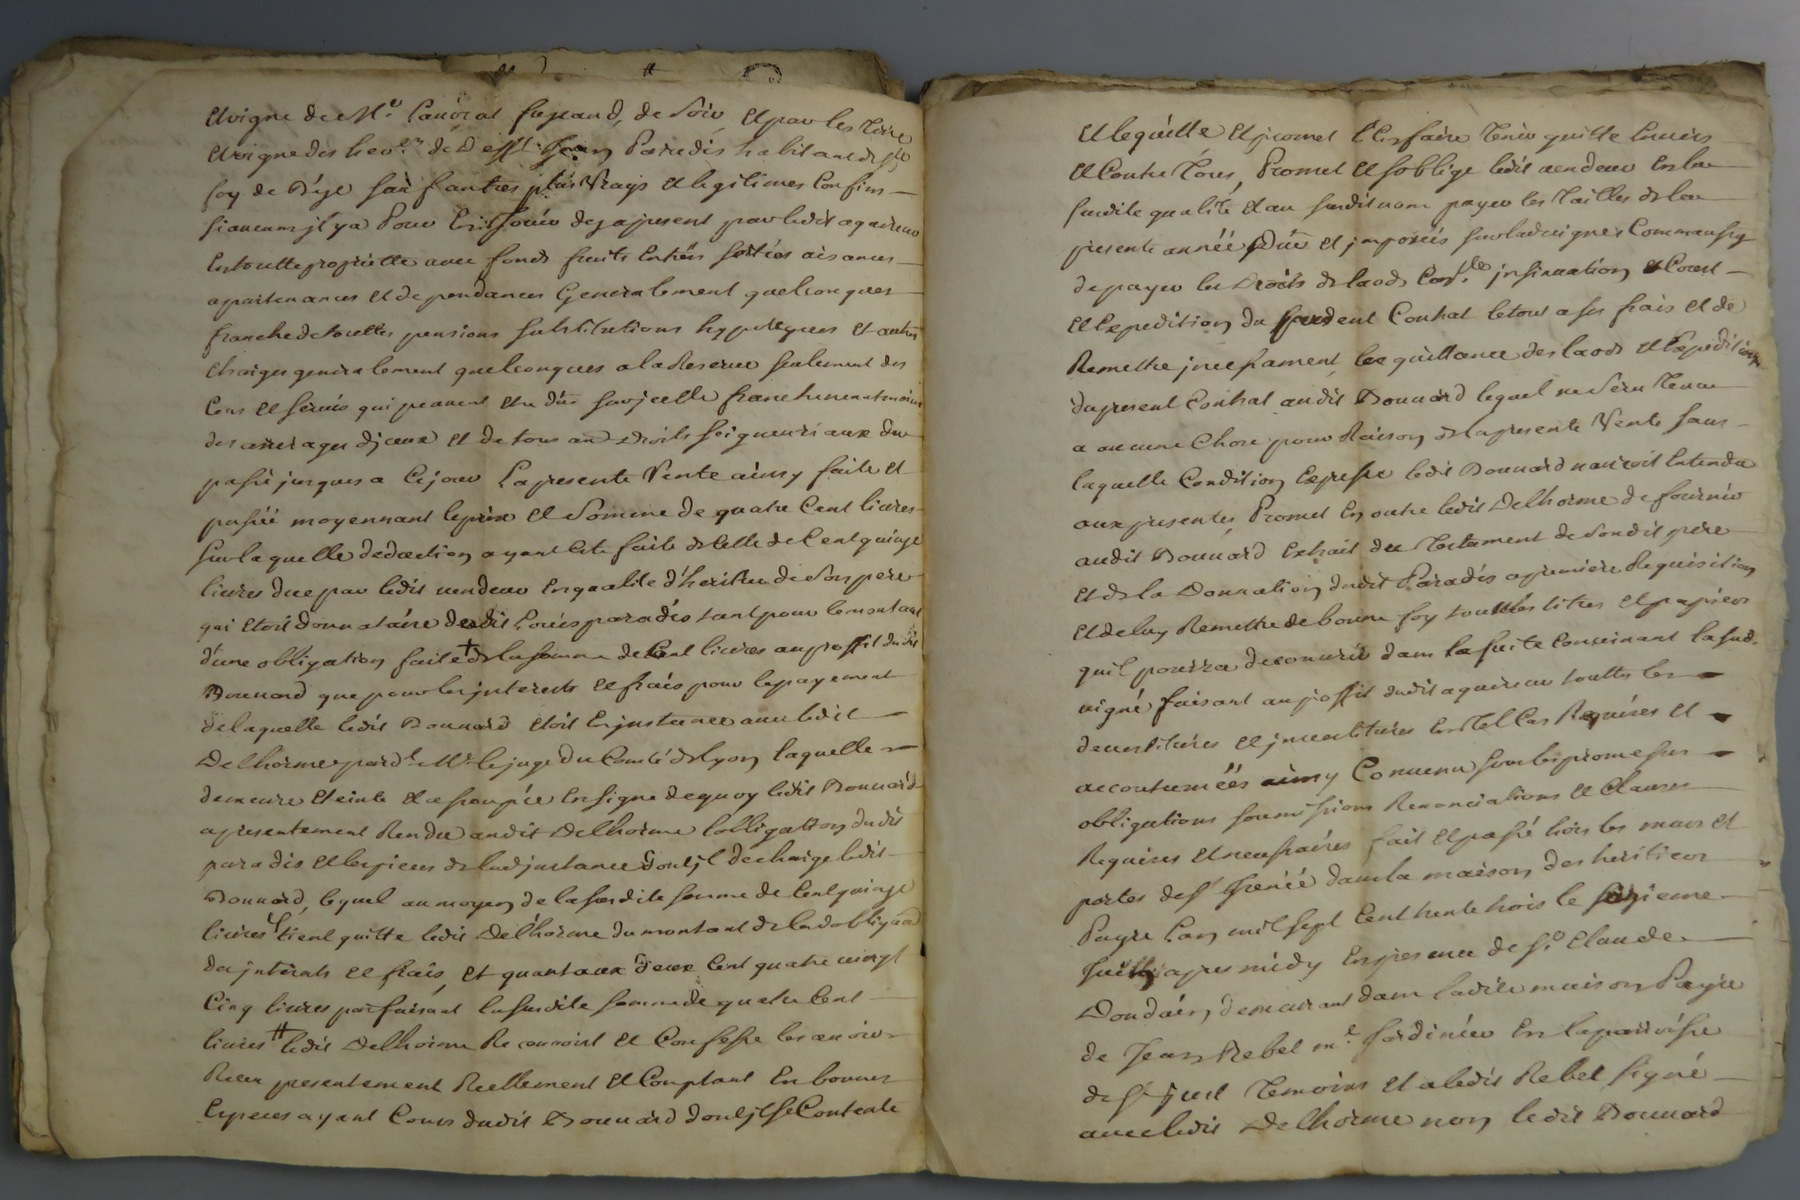 et vigne de Mr. Laurat fayard, de Soir et par les terre
et vigne des heors. de Defft. Jean Paradis habitant de Ste
foy de Bége sauf autres plus vrays et legitimes Confins
si aucuns jl y a Pour En jouir dez apresent par ledit aquereur
En toutte proprietté avec fonds fruits Entréés sortiés aisances
apartenances et dependances Generalement quelconques
franche de touttes pensions substitutions hypoteques et autres
charges generalement quelconques a la Reserve seulement des
Cens et servis qui peuvent etre dûs sur jcelle franche neantmoins
des arrerages djceux et de tous aud. droits seigneuriaux du
passé jusques a Ce jour La presente Vente ainsy faite et
passéé moyennant le prix et Somme de quatre Cent livres
sur laquelle deduction ayant Eté faite de Celle de Cent quinze
livres due par ledit vendeur En qualité d'heritier de Son pere
qui etoit donnatâire dudit Loüis paradis tant pour le montant
d'une obligation faite de la somme de Cent livres au proffit dudit
Bonnard que pour les jnterests et frais pour le payement
de laquelle ledit Bonnard etoit En jnstance avec ledit
Delhorme pard. Mr. le juge du Comté de Lyon laquelle
demeure eteinte et assoupie En signe de quoy ledit Bonnard
a presentement Rendu audit Delhorme l'obligation dudit
paradis et les pieces de lad jnstance dont jl decharge ledit
Bonnard, lequel au moyen de la susdite somme de Cent quinze
livres tient quitte ledit Delhorme du montant de lad obligaõn
des jnterets et frais, et quant aux deux Cent quatre vingt
Cinq livres parfaisant la susdite somme de quatre Cent
livres ledit Delhorme Reconnoist et Confesse les avoir
Receu presentement Reellement et Comptant En bonnes
Especes ayant Cours dudit Bonnard dont jl se Contente
et le quitte et promet l'En faire tenir quitte Envers
et Contre tous, Promet et s'oblige ledit vendeur En la
susdite qualité et au susdit nom payer les tailles de la
presente annéé düe et jmposéés sur lad vigne Comme aussy
de payer les Droits de laods jnsinuation et Cout
et Expedition du present Contrat le tout a ses frais et de
Remettre jncessament les quittance des laods et Expedition
du present Contrat audit Bonnard lequel ne Sera tenu
a aucune Chose pour Raison de la presente Vente sans
laquelle Condition Expresse ledit Bonnard n'auroit Entendu
aux presentes, Promet En outre ledit Delhorme de fournir
audit Bonnard Extrait du testament de Sondit pere
et de la Donnation dudit Paradis a premiere Requisition
et de luy Remettre de bonne foy touttes les titres et papiers
qu'il pourra decouvrir dans la suite Concernant la sud.
vigne faisant au proffit dudit aquereur touttes les
devestitures et jnvestitures En tel Cas Requises et
accoutuméés ainsy Convenu sous les promesses
obligations soumissions Renonciations et Clauses
Requises et necessaires fait et passé hors les murs et
portes de St. Jrenéé dans la maison des heritiers
Payre L'an mil sept Cent trente trois le seizieme
Juillet apres midy En presence de Sr. Claude
Dondain, demeurant dans ladite maison Payre
de Jean Rebel me. Jardinier En la parroisse
de St. Just temoins et a ledit Rebel signé
avec ledit Delhorme non ledit Bonnard